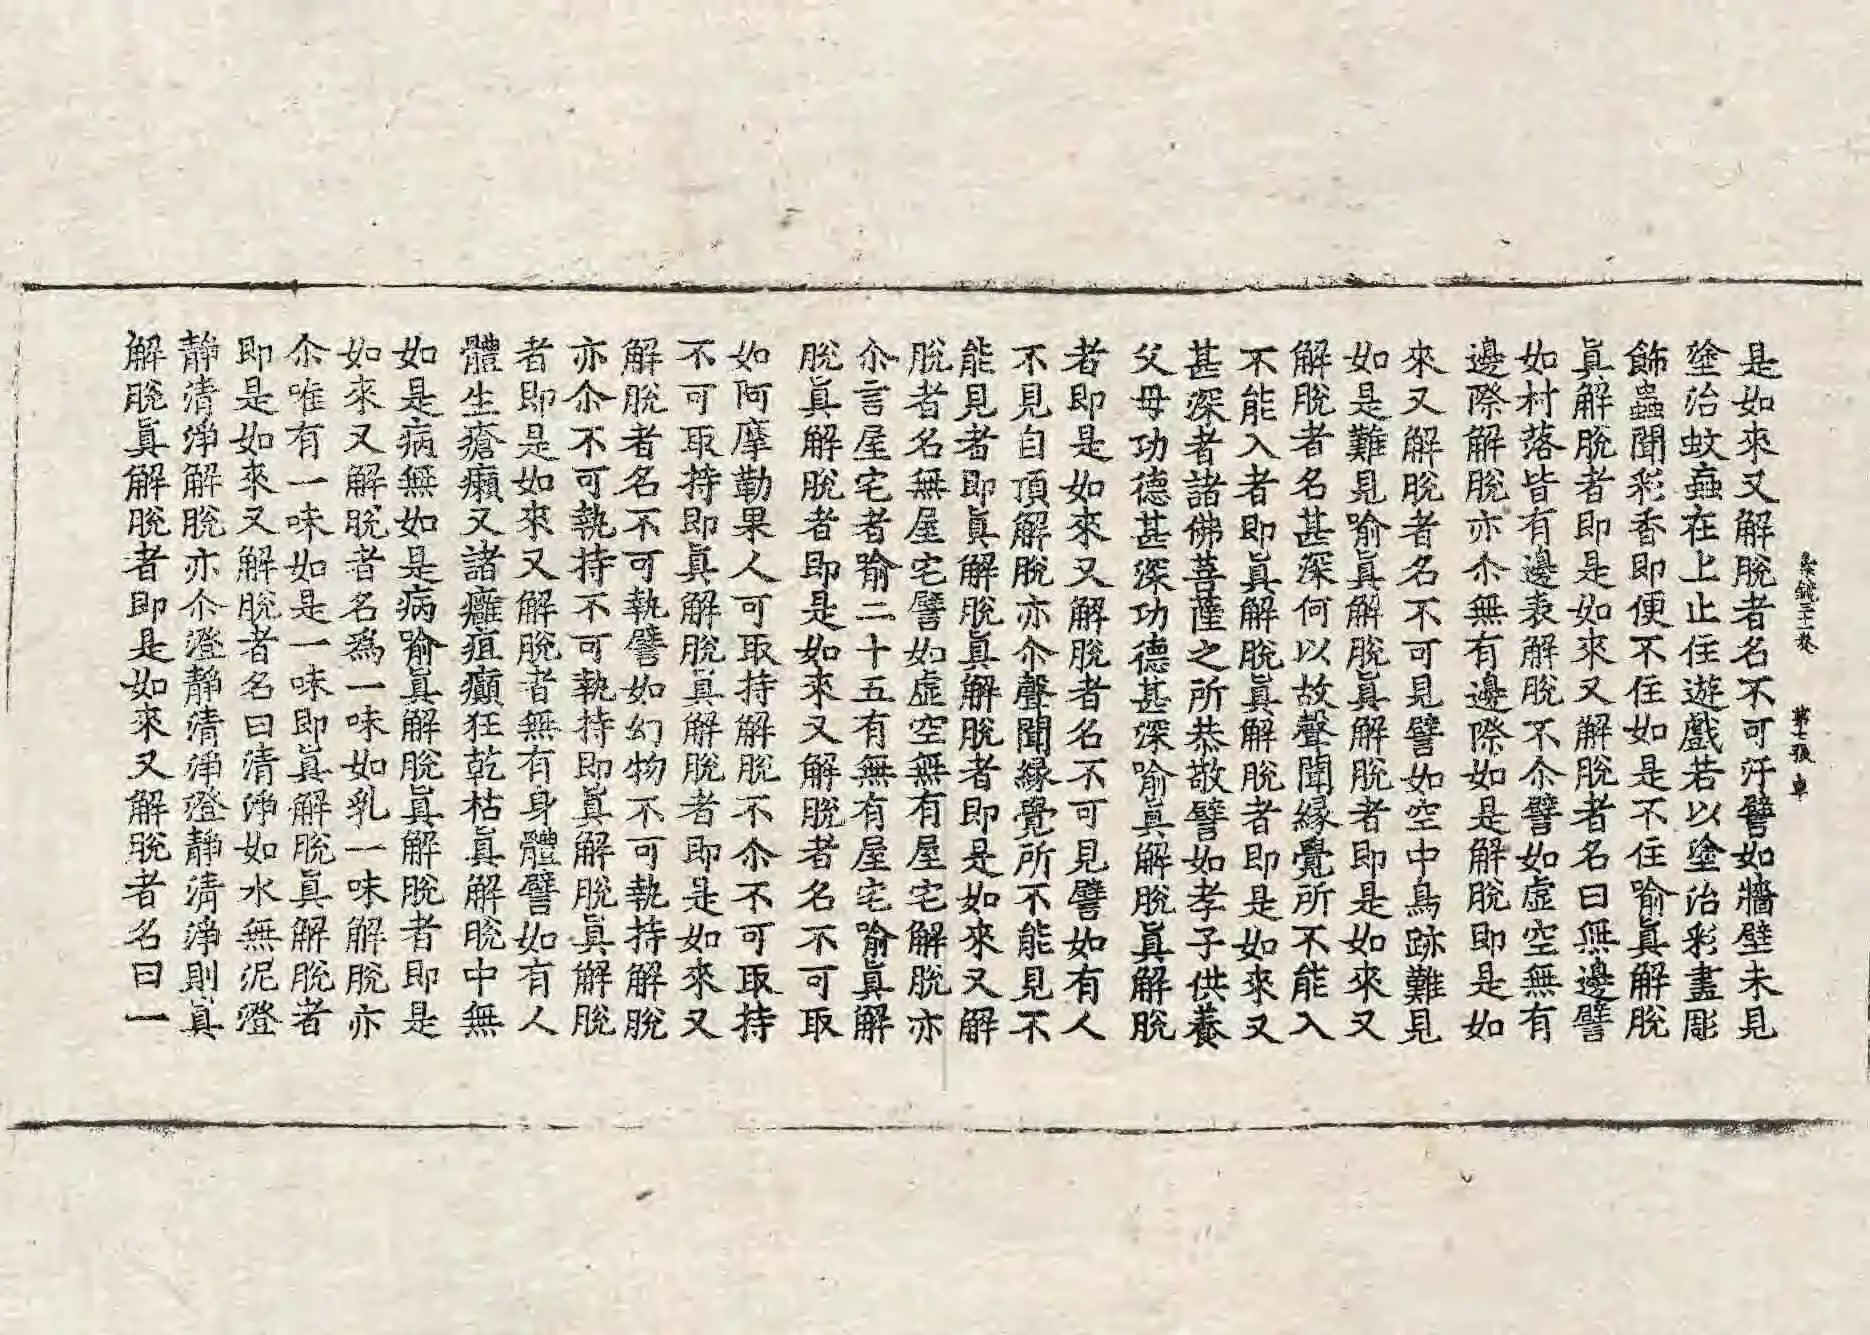 是如來又解脫者名不可汙譬如牆壁未見
塗治蚊䖟在上止住遊戲若以塗治彩畫彫
飾蟲聞彩香即便不住如是不住喻眞解脫
眞解脫者即是如來又解脫者名曰無邊譬
如村落皆有邊表解脫不尒譬如虛空無有
邊際解脫亦尒無有邊際如是解脫即是如
來又解脫者名不可見譬如空中鳥跡難見
如是難見喻眞解脫眞解脫者即是如來又
解脫者名甚深何以故聲聞緣覺所不能入
不能入者即眞解脫眞解脫者即是如來又
甚深者諸佛菩薩之所恭敬譬如孝子供養
父母功德甚深功德甚深喻眞解脫眞解脫
者即是如來又解脫者名不可見譬如有人
不見自頂解脫亦尒聲聞緣覺所不能見不
能見者即眞解脫眞解脫者即是如來又解
脫者名無屋宅譬如虛空無有屋宅解脫亦
尒言屋宅者喻二十五有無有屋宅喻眞解
脫眞解脫者即是如來又解脫者名不可取
如阿摩勒果人可取持解脫不尒不可取持
不可取持即眞解脫眞解脫者即是如來又
解脫者名不可執譬如幻物不可執持解脫
亦尒不可執持不可執持即眞解脫眞解脫
者即是如來又解脫者無有身體譬如有人
體生瘡癩又諸癰疽癲狂乾枯眞解脫中無
如是病無如是病喻眞解脫眞解脫者即是
如來又解脫者名爲一味如乳一味解脫亦
尒唯有一味如是一味即眞解脫眞解脫者
即是如來又解脫者名曰清淨如水無泥澄
靜清淨解脫亦尒澄靜清淨澄靜清淨則眞
解脫眞解脫者即是如來又解脫者名曰一